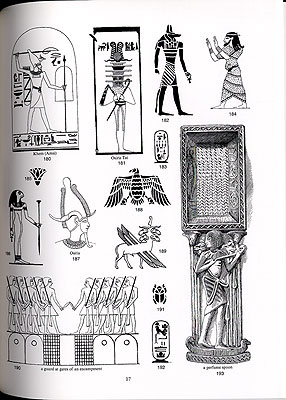 Khem (Amsi)
180
Osiris Tat
181
182
184
183
185
186
Osiris
187
188
189
190
a guard at gates of an encampment
191
192
a perfume spoon
193
17